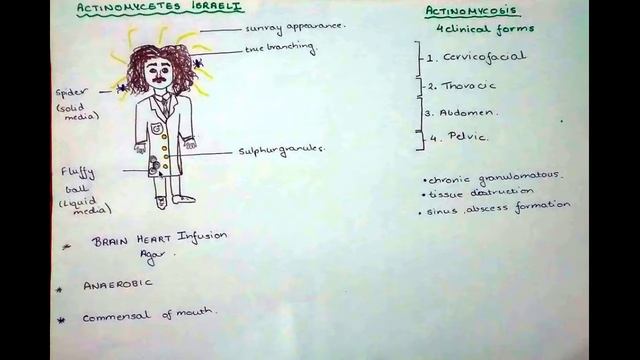 ACTINOMYCETES ISRAELI
sunray appearance.
true branching.
Spider
(solid
media)
Sulphur granules.
Fluffy
ball
(liquid
media)
* BRAIN HEART Infusion
Agar.
* ANAEROBIC
* Commensal of mouth.
ACTINOMYCOSIS
4 clinical forms
1. Cervicofacial
2. Thoracic
3. Abdomen.
4. Pelvic.
• chronic granulomatous.
• tissue destruction
• sinus, abscess formation